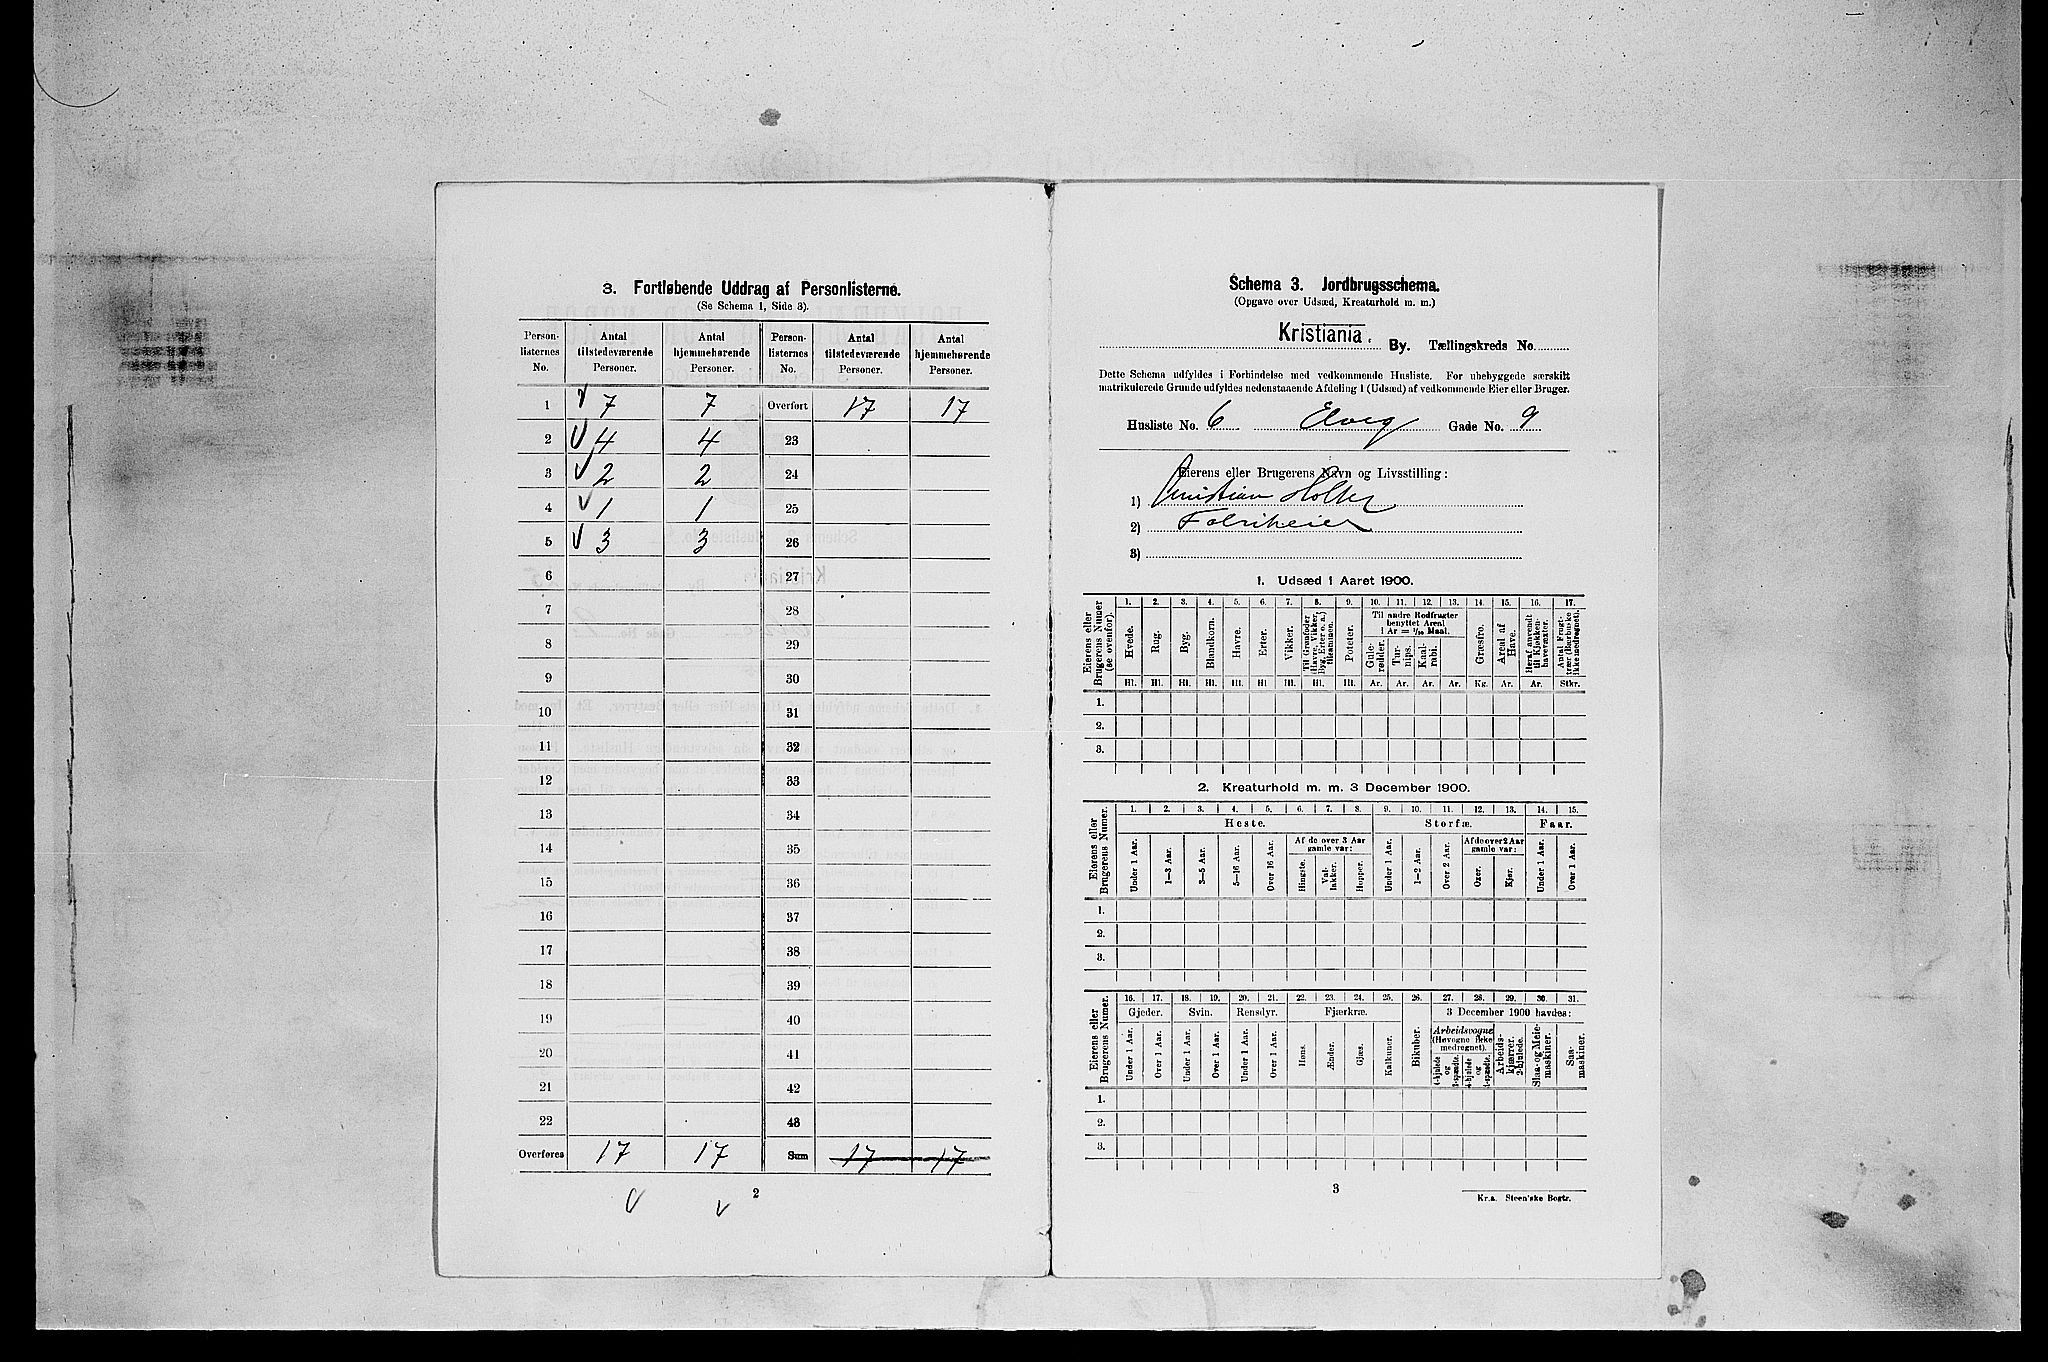 3. Fortløbende Uddrag af Personlisterne.
(Se Schema 1, Side 3).
Person-listernes No. Antal tilstedeværende Personer. Antal hjemmehørende Personer. Person-listernes No. Antal tilstedeværende Personer. Antal hjemmehørende Personer.
1 7 7 Overført 17 17
2 4 4 23
3 2 2 24
4 1 1 25
5 3 3 26
6 27
7 28
8 29
9 30
10 31
11 32
12 33
13 34
14 35
15 36
16 37
17 38
18 39
19 40
20 41
21 42
22 43
Overføres 17 17 Sum 17 17
2
Schema 3. Jordbrugsschema.
(Opgave over Udsæd, Kreaturhold m. m.)
Kristiania. By. Tællingskreds No.
Dette Schema udfyldes i Forbindelse med vedkommende Husliste. For ubebyggede særskilt
matrikulerede Grunde udfyldes nedenstaaende Afdeling 1 (Udsæd) af vedkommende Eier eller Bruger.
Husliste No. 6 Elveg Gade No. 9
Eierens eller Brugerens Navn og Livsstilling:
1) Christian Holter
2) Fabrikeier
3)
1. Udsæd i Aaret 1900.
Eierens eller Brugerens Numer (se ovenfor).
1. 2. 3. 4. 5. 6. 7. 8. 9. 10. 11. 12. 13. 14. 15. 16. 17.
Hvede. Rug. Byg. Blandkorn. Havre. Erter. Vikker. Til Grønfoder (Havre, Vikker, Byg, Erter o. a.) tilsammen. Poteter.
Til andre Rodfrugter benyttet Areal 1 Ar = 1/10 Maal.
Gule-rødder. Tur-nips. Kaal-rabi. Græsfrø. Areal af Have. Heraf anvendt til Kjøkken-havevæxter. Antal Frugt-trær (Bærbuske ikke medregnet).
Hl. Hl. Hl. Hl. Hl. Hl. Hl. Hl. Hl. Ar. Ar. Ar. Ar. Kg. Ar. Ar. Stkr.
1.
2.
3.
2. Kreaturhold m. m. 3 December 1900.
Eierens eller Brugerens Numer.
1. 2. 3. 4. 5. 6. 7. 8. 9. 10. 11. 12. 13. 14. 15.
Heste. Storfæ. Faar.
Under 1 Aar. 1—3 Aar. 3—5 Aar. 5—16 Aar. Over 16 Aar. Af de over 3 Aar gamle var: Hingste. Val-lakker. Hopper. Under 1 Aar. 1—2 Aar. Over 2 Aar. Af de over 2 Aar gamle var: Oxer. Kjør. Under 1 Aar. Over 1 Aar.
1.
2.
3.
Eierens eller Brugerens Numer.
16. 17. 18. 19. 20. 21. 22. 23. 24. 25. 26. 27. 28. 29. 30. 31.
Gjeder. Svin. Rensdyr. Fjærkræ. 3 December 1900 havdes:
Under 1 Aar. Over 1 Aar. Under 1 Aar. Over 1 Aar. Under 1 Aar. Over 1 Aar. Høns. Ænder. Gjæs. Kalkuner. Bikuber. Arbeidsvogne (Høvogne ikke medregnet). 4-hjulede og 2-spændte. 4-hjulede og 1-spændte. Arbeids-kjærrer. 2-hjulede. Slaa- og Meie-maskiner. Saa-maskiner.
1.
2.
3.
3
Kr.a. Steen'ske Bogtr.